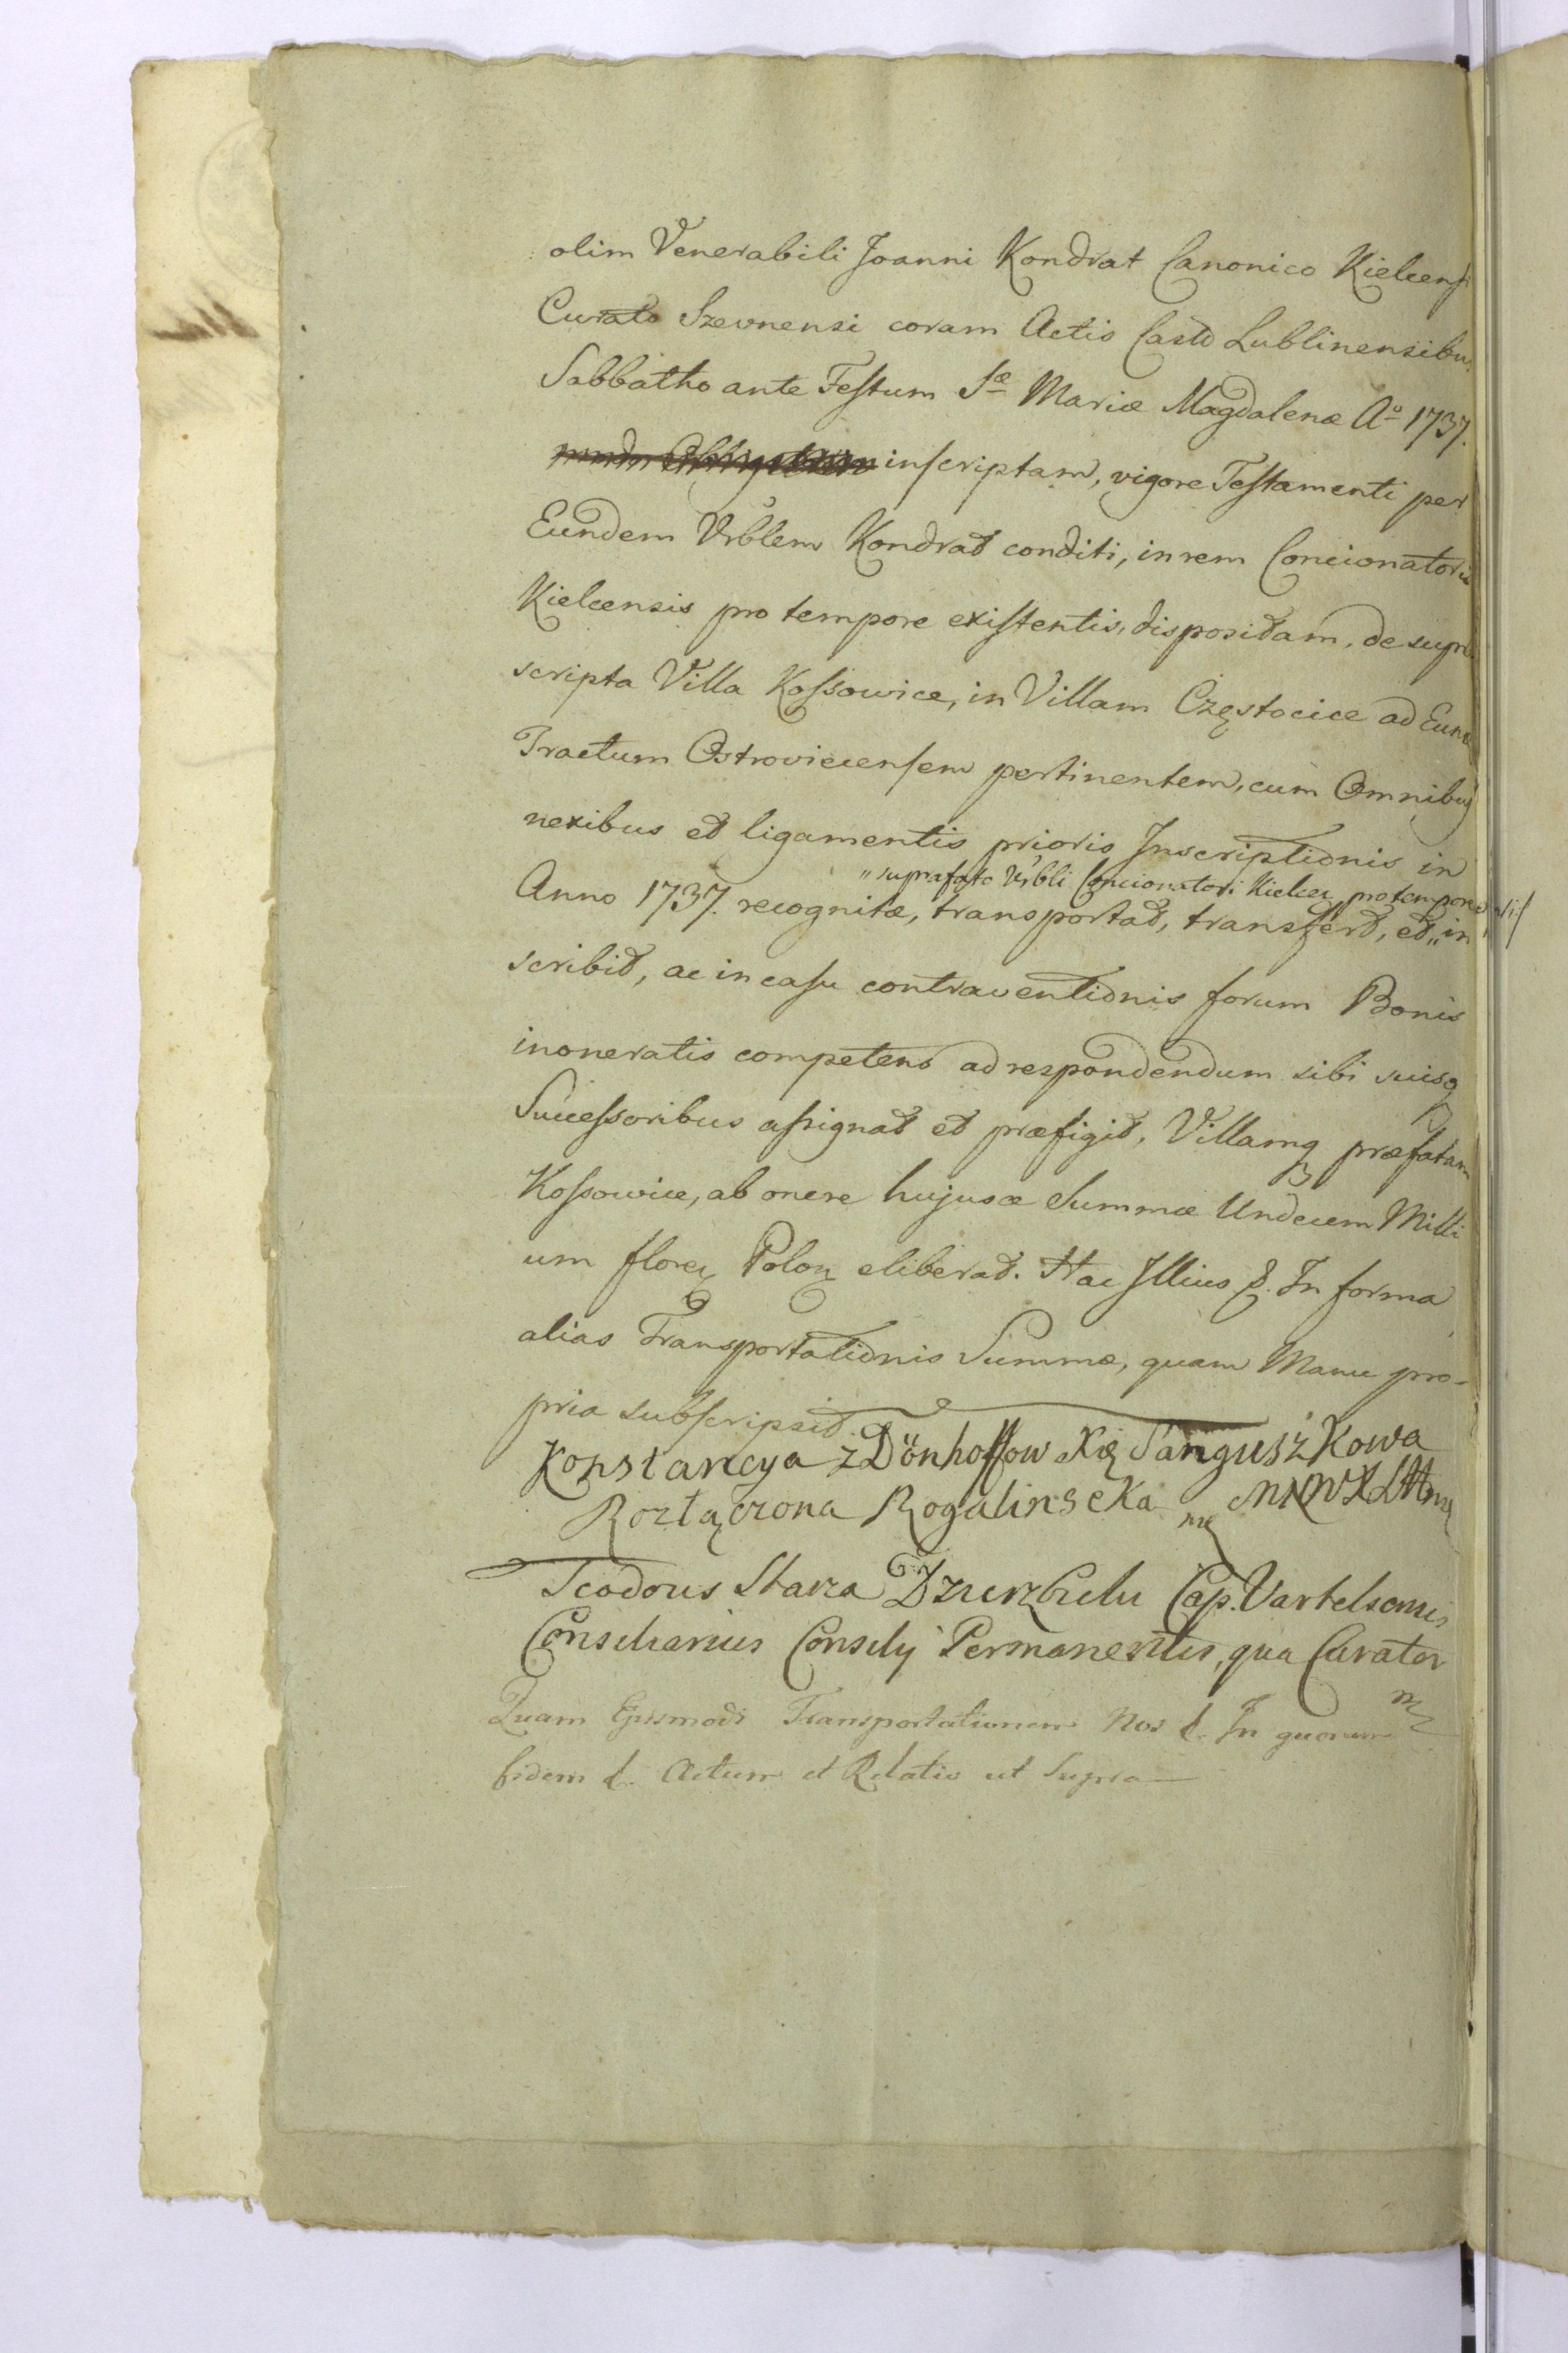 olim Venerabili Joanni Kondrat Canonico Kielcensi
Curato Szewnensi coram Actis Castr Lublinensibus
Sabbatho ante Festum Sæ Mariæ Magdalenæ Aº 1737.
inscriptam, vigore Testamenti per
Eundem Vrblem Kondrat conditi, in rem Concionatoris
Kielcensis pro tempore existentis, dispositam, de supra
scripta Villa Kossowice, in Villam Częstocice ad Eund
Tractum Ostroviecensem pertinentem, cum Omnibus
nexibus et ligamentis prioris Inscriptionis in
"suprafato Vrbli Concionatori Kielcen pro tempore
Anno 1737. recognitæ, transportat, transfert, et "in
scribit, ac in casu contraventionis forum Bonis
inoneratis competens ad respondendum sibi suisq
Successoribus assignat et præfigit, Villamq præfatam
Kossowice, ab onere hujusce Summæ Undecem Milli
um floren Polon eliberat. Hac Illius &. In forma
alias Transportationis Summæ, quam Manu pro-
pria subscripsit.
Konstancya z Dönhoffow Xię Sanguszkowa
Rozłączona Rogalinscka MNWXLitt
mp
Teodorus Starza Dzierzbicki Cap.
Consiliarius Consily Permanentis, qua Curator
mp
Quam Ejusmodi Transportationem Nos &. In quorum
fidem &. Actum et Relatio ut Supra—